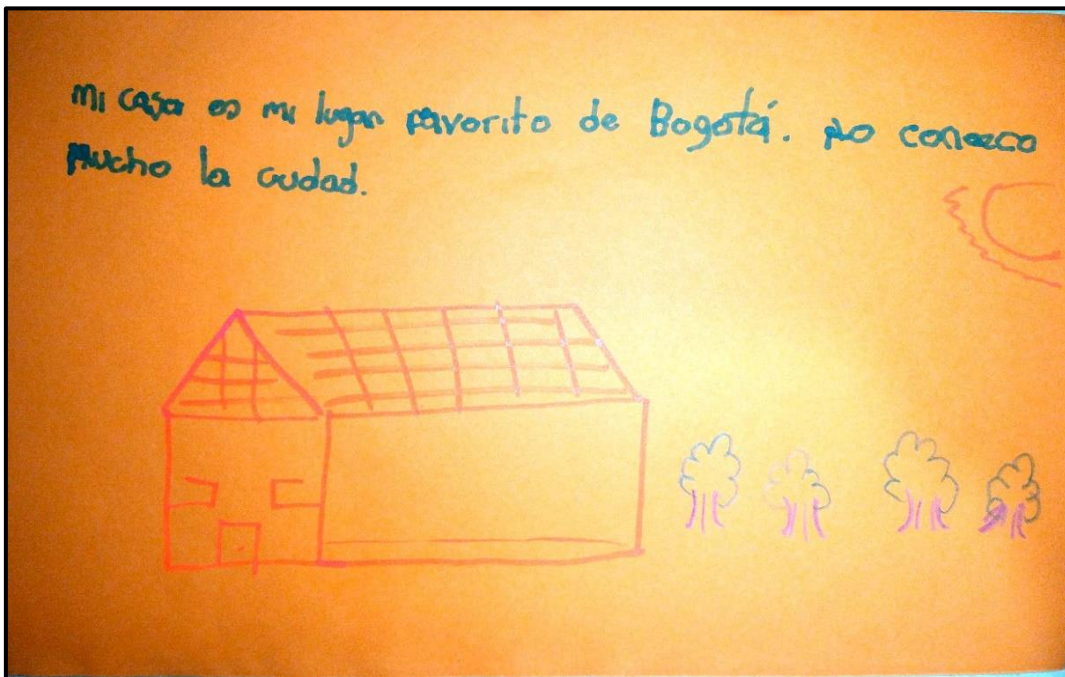 Mi casa es mi lugar favorito de Bogotá. No conozco
Mucho la ciudad.